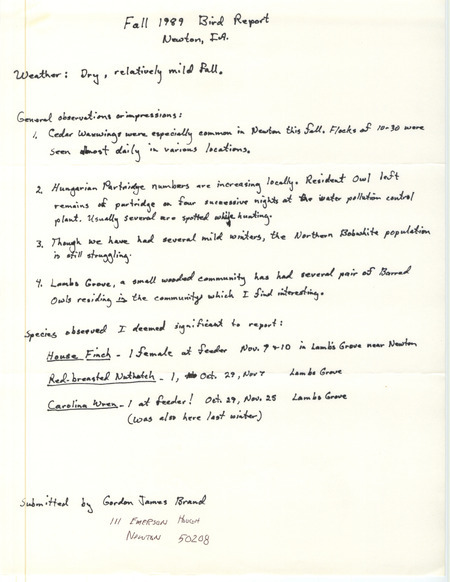 Fall 1989 Bird Report
Newton, IA.
Weather: Dry, relatively mild fall.
General observations or impressions:
1. Cedar Waxwings were especially common in Newton this fall. Flocks of 10-30 were
seen almost daily in various locations.
2. Hungarian Partridge numbers are increasing locally. Resident Owl left
remains of partridge on four successive nights at the water pollution control
plant. Usually several are spotted while hunting.
3. Though we have had several mild winters, the Northern Bobwhite population
is still struggling.
4. Lambs Grove, a small wooded community has had several pair of Barred
Owls residing in the community which I find interesting.
Species observed I deemed significant to report:
House Finch - 1 female at feeder Nov. 9 & 10 in Lambs Grove near Newton
Red-breasted Nuthatch - 1, Oct. 29, Nov 7 Lambs Grove
Carolina Wren - 1 at feeder! Oct. 29, Nov. 25 Lambs Grove
(was also here last winter)
Submitted by Gordon James Brand
111 EMERSON HOUGH
NEWTON 50208